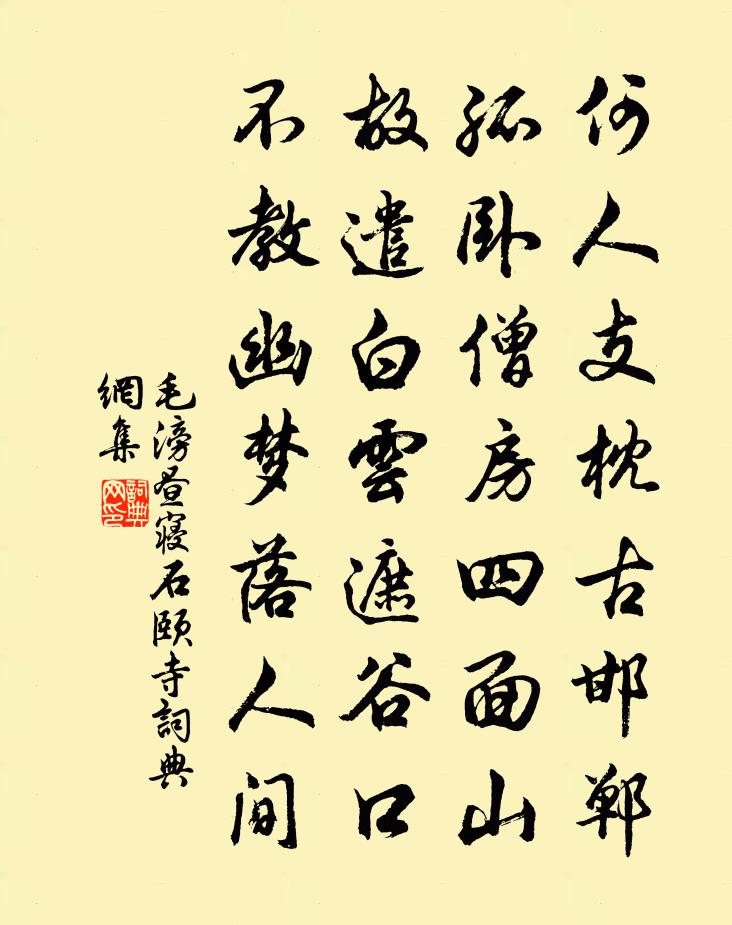 何人支枕古邯鄲
孤卧僧房四面山
故遣白雲遮谷口
不教幽梦落人间
毛滂昼寝石颐寺詞典
網集
詞典
网印